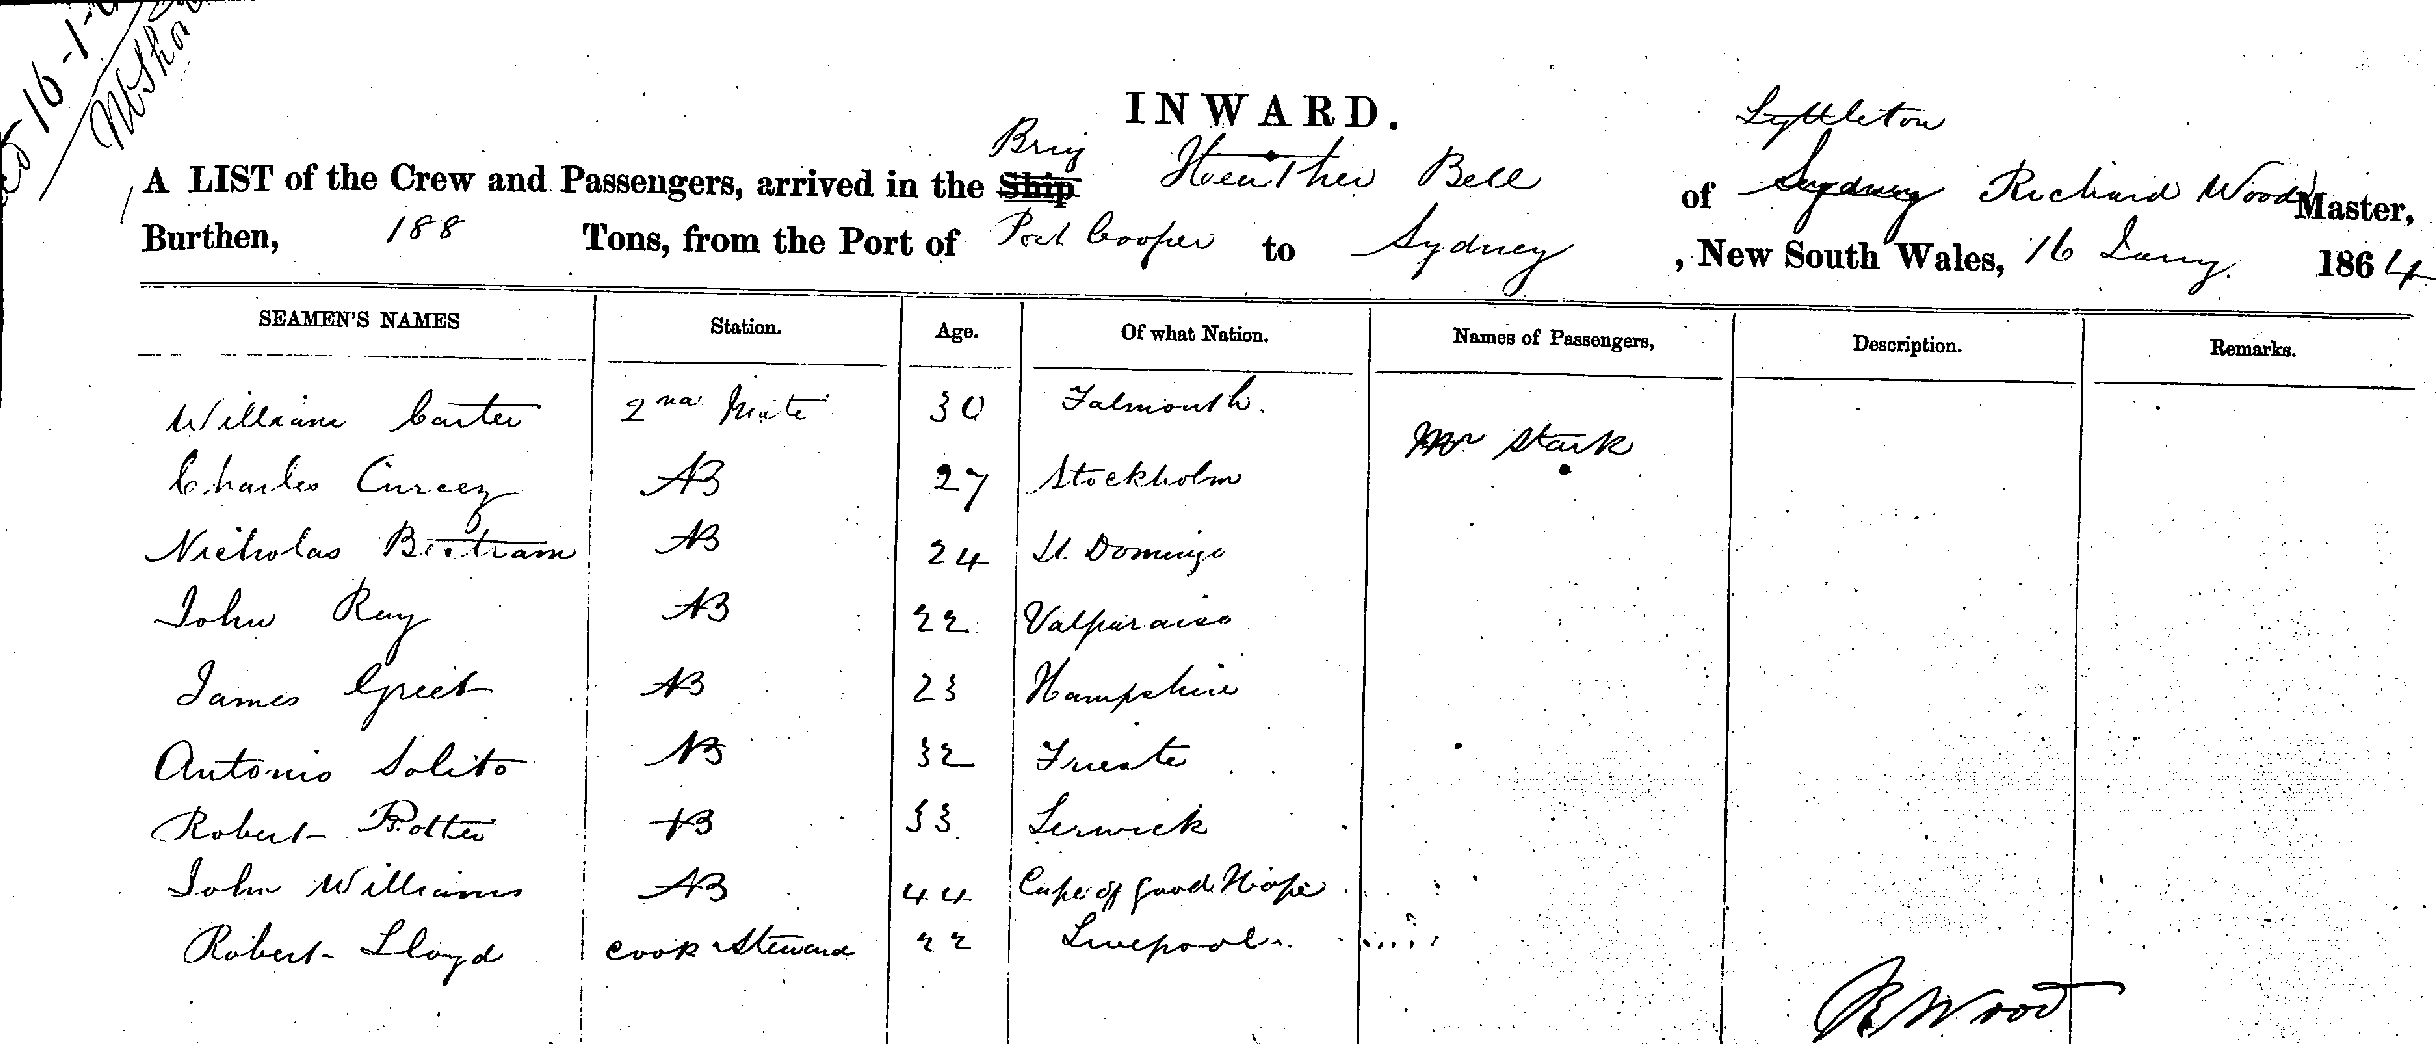 16-1-
INWARD.
Brig Lyttleton
A LIST of the Crew and Passengers, arrived in the Ship Heather Bell of Sydney Richard Wood Master,
Burthen, 188 Tons, from the Port of Port Cooper to Sydney , New South Wales, 16 Jany. 1864
SEAMEN'S NAMES Station. Age. Of what Nation. Names of Passengers, Description. Remarks.
William Carter 2nd Mate 30 Falmouth.
Mr Stark
Charles AB 27 Stockholm
Nicholas Bertram AB 24 St. Domingo
John Ray AB 22 Valparaiso
James AB 23 Hampshire
Antonio Solito AB 32 Trieste
Robert Potter AB 33 Lerwick
John Williams AB 44 Cape of Good Hope
Robert Lloyd Cook & Steward 22 Liverpool
R Wood